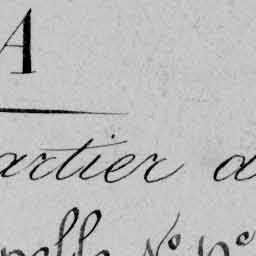 A
artier d
pelle N° p^e